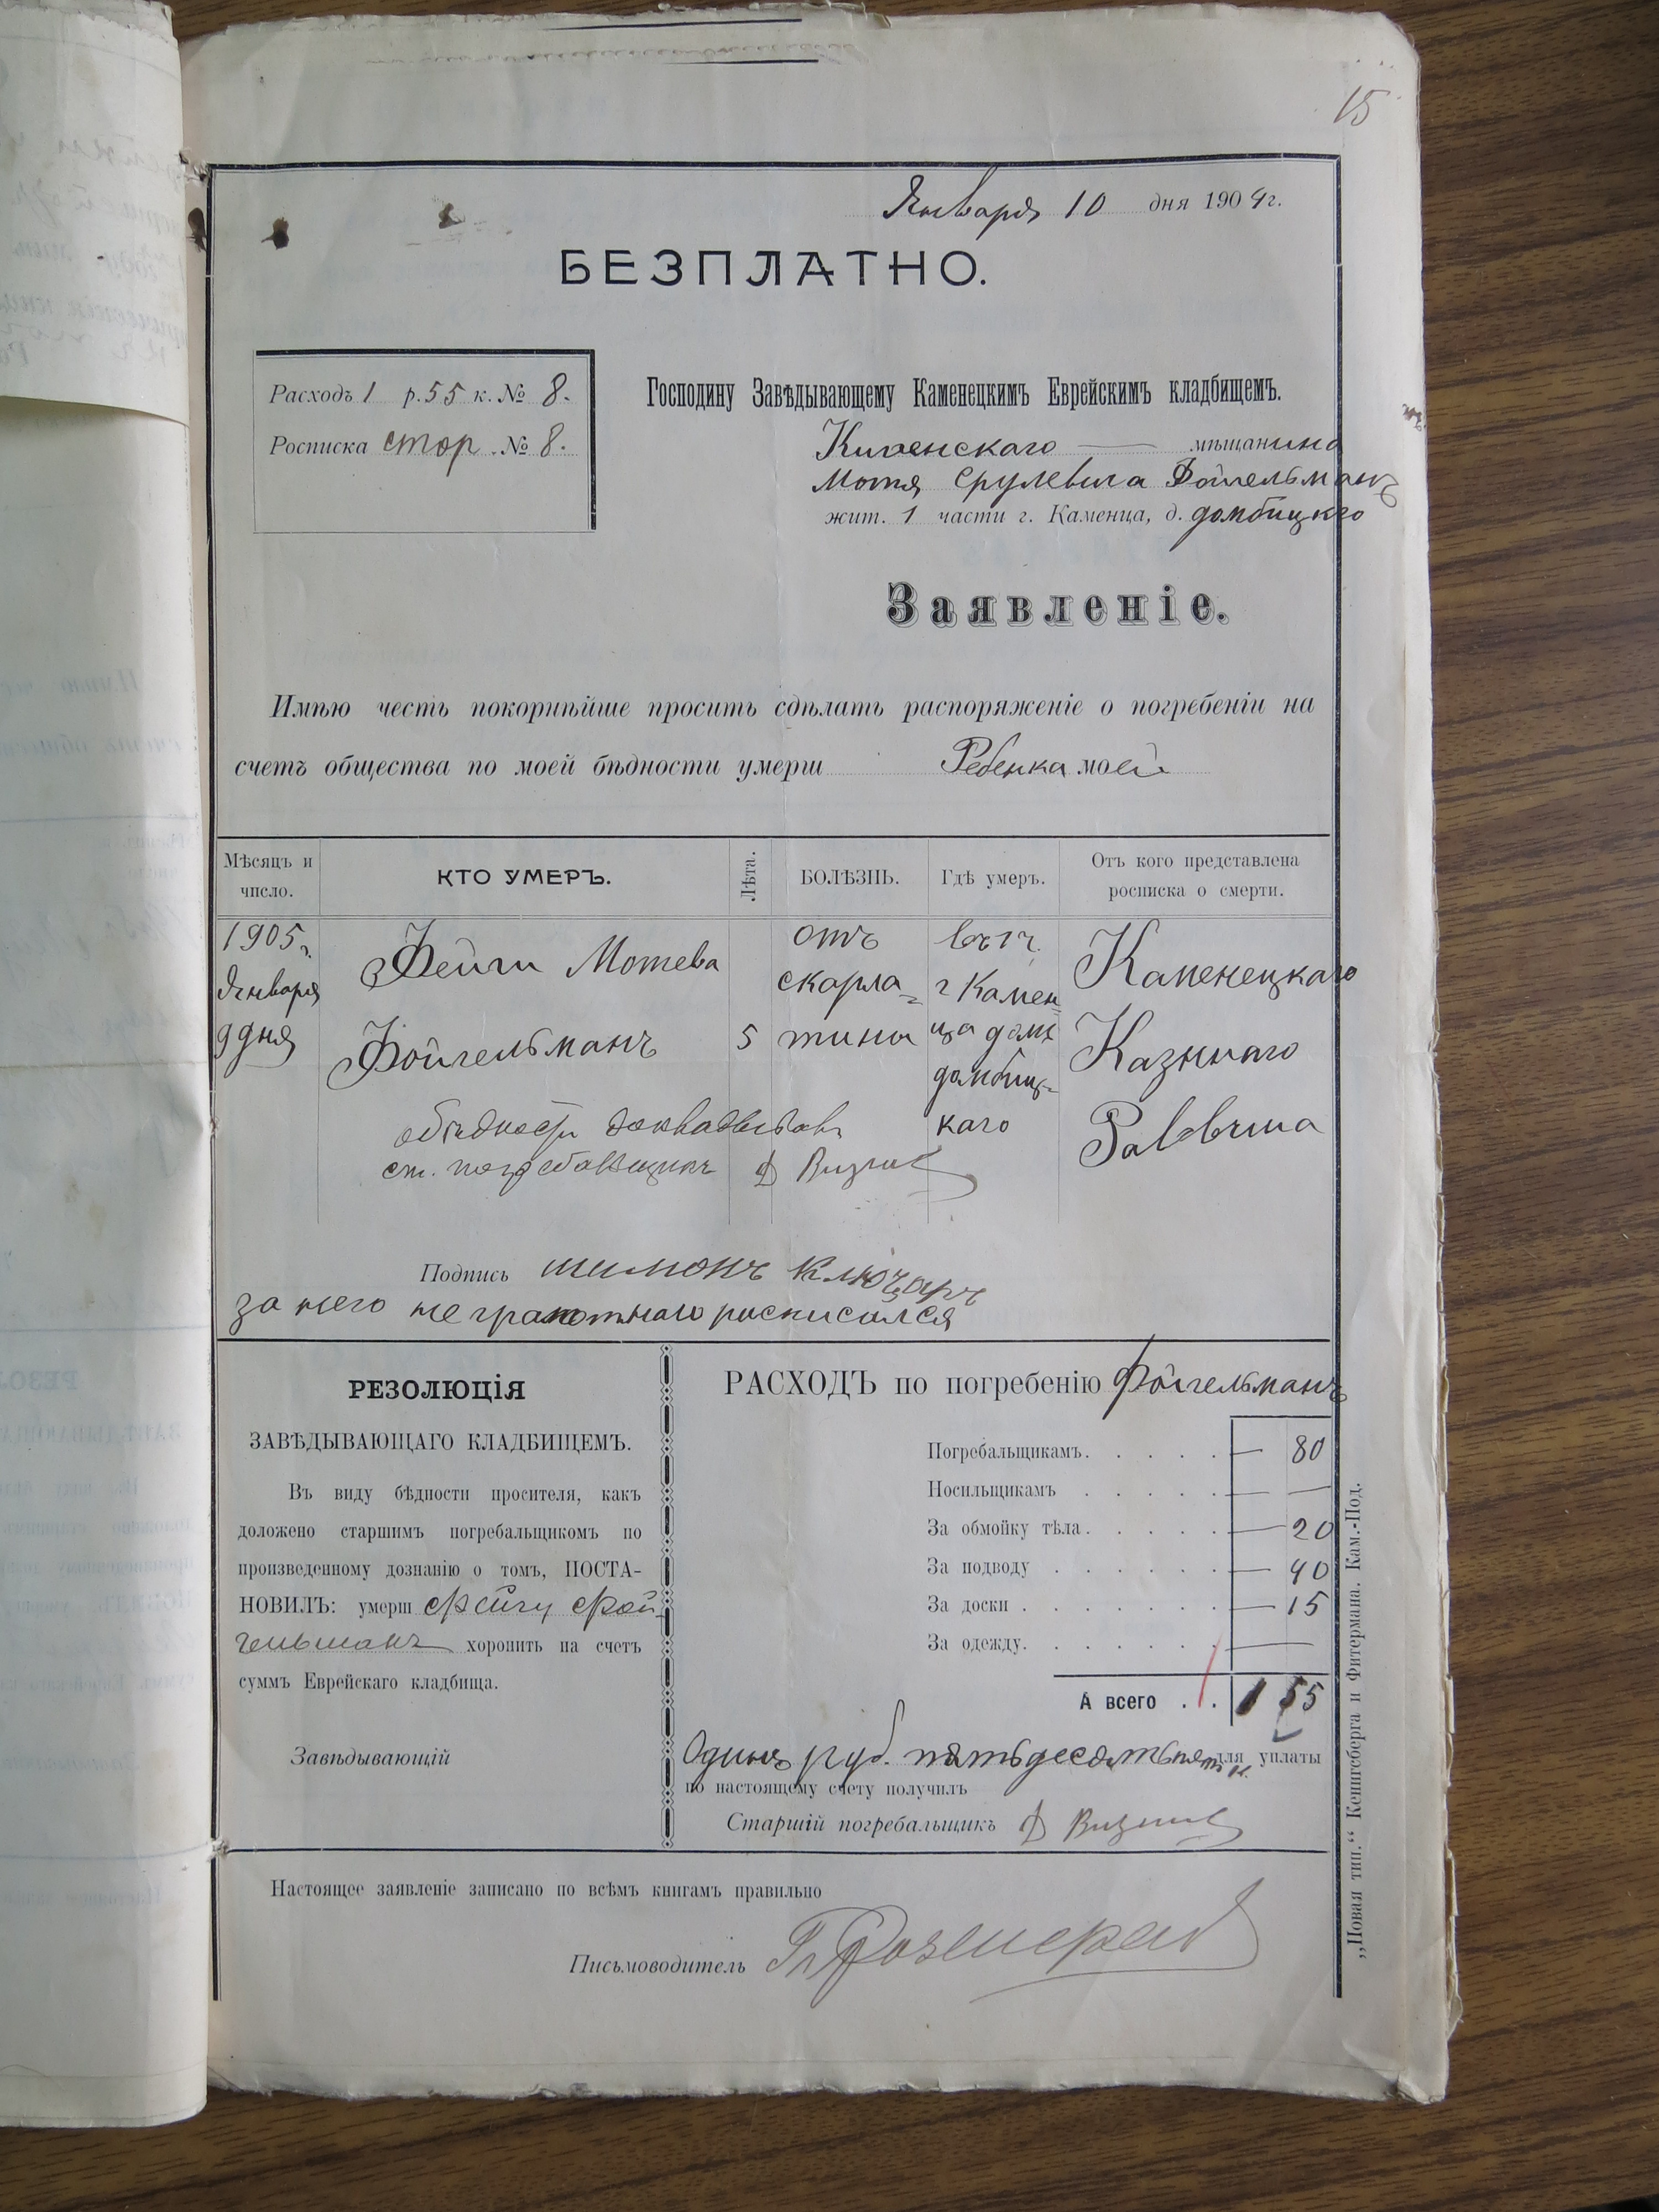 15
Января 10 дня 1904 г.
БЕЗПЛАТНО.
Расходъ 1 р. 55 к. № 8.
Росписка стор. № 8.
Господину Завѣдывающему Каменецкимъ Еврейскимъ кладбищемъ.
мѣщанина
Мотя Срулевича Фойгельманъ
жит. 1 части г. Каменца, д. домбицкго
Заявленіе.
Имѣю честь покорнѣйше просить сдѣлать распоряженіе о погребеніи на
счетъ общества по моей бѣдности умерш Ребенка моей
Мѣсяцъ и число.
КТО УМЕРЪ.
Лѣта.
БОЛѢЗНЬ.
Гдѣ умеръ.
Отъ кого представлена росписка о смерти.
1905 г.
Января
9 дня
Фейги Мотева
Фойгельманъ
5
отъ
скарла=
тины
г Камен
ца домѣ
домбиц-
каго
Каменецкаго
Казннаго
Раввина
о бѣдности
ст. погребальщикъ Д
Подпись шимонъ Ключаръ
за него не грамотнаго росписался
РЕЗОЛЮЦІЯ
ЗАВѢДЫВАЮЩАГО КЛАДБИЩЕМЪ.
Въ виду бѣдности просителя, какъ
доложено старшимъ погребальщикомъ по
произведенному дознанію о томъ, ПОСТА-
НОВИЛЪ: умерш Фейгу Фой-
гельманъ хоронить на счетъ
суммъ Еврейскаго кладбища.
Завѣдывающій
РАСХОДЪ по погребенію Фойгельманъ
Погребальщикамъ. . . . . — 80
Носильщикамъ . . . . . — —
За обмойку тѣла. . . . . — 20
За подводу . . . . . . — 40
За доски . . . . . . . — 15
За одежду. . . . . . . —
А всего . . 1 55
Одинъ руб. пятьдесятъ пять к. для уплаты
по настоящему счету получилъ
Старшій погребальщикъ Д
Настоящее заявленіе записано по всѣмъ книгамъ правильно
Письмоводитель
„Новая тип.“ Кенигсберга и Фитермана. Кам.-Под.